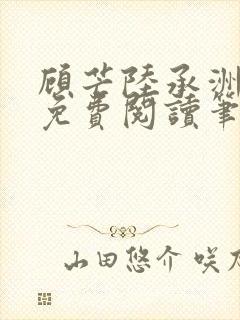 顾芒陸承洲
免費閱讀筆
山田悠介 咲